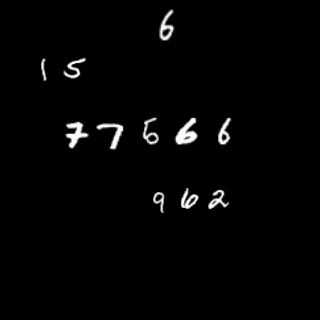 6
15
77566
962